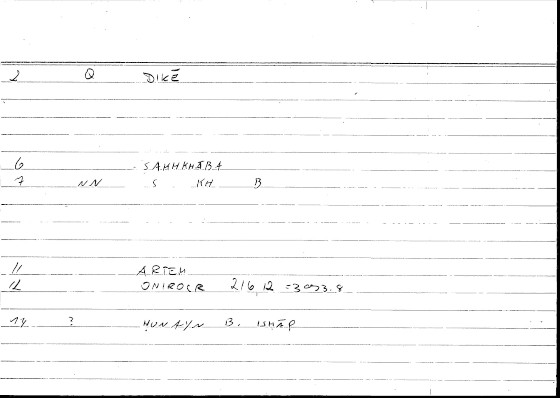 2 Q DIKĒ
6 SAHHKHĀBA
7 NN S KH B
11 ARTEM
12 ONIROCR 216,12
14 ? HUNAYN B. ISHĀP